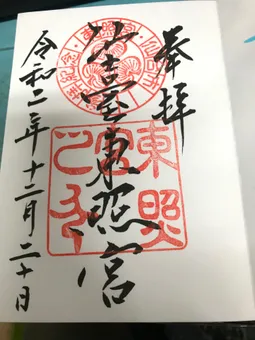 奉拝
仙臺東照宮
令和二年十二月二十日
東照
宮
之印